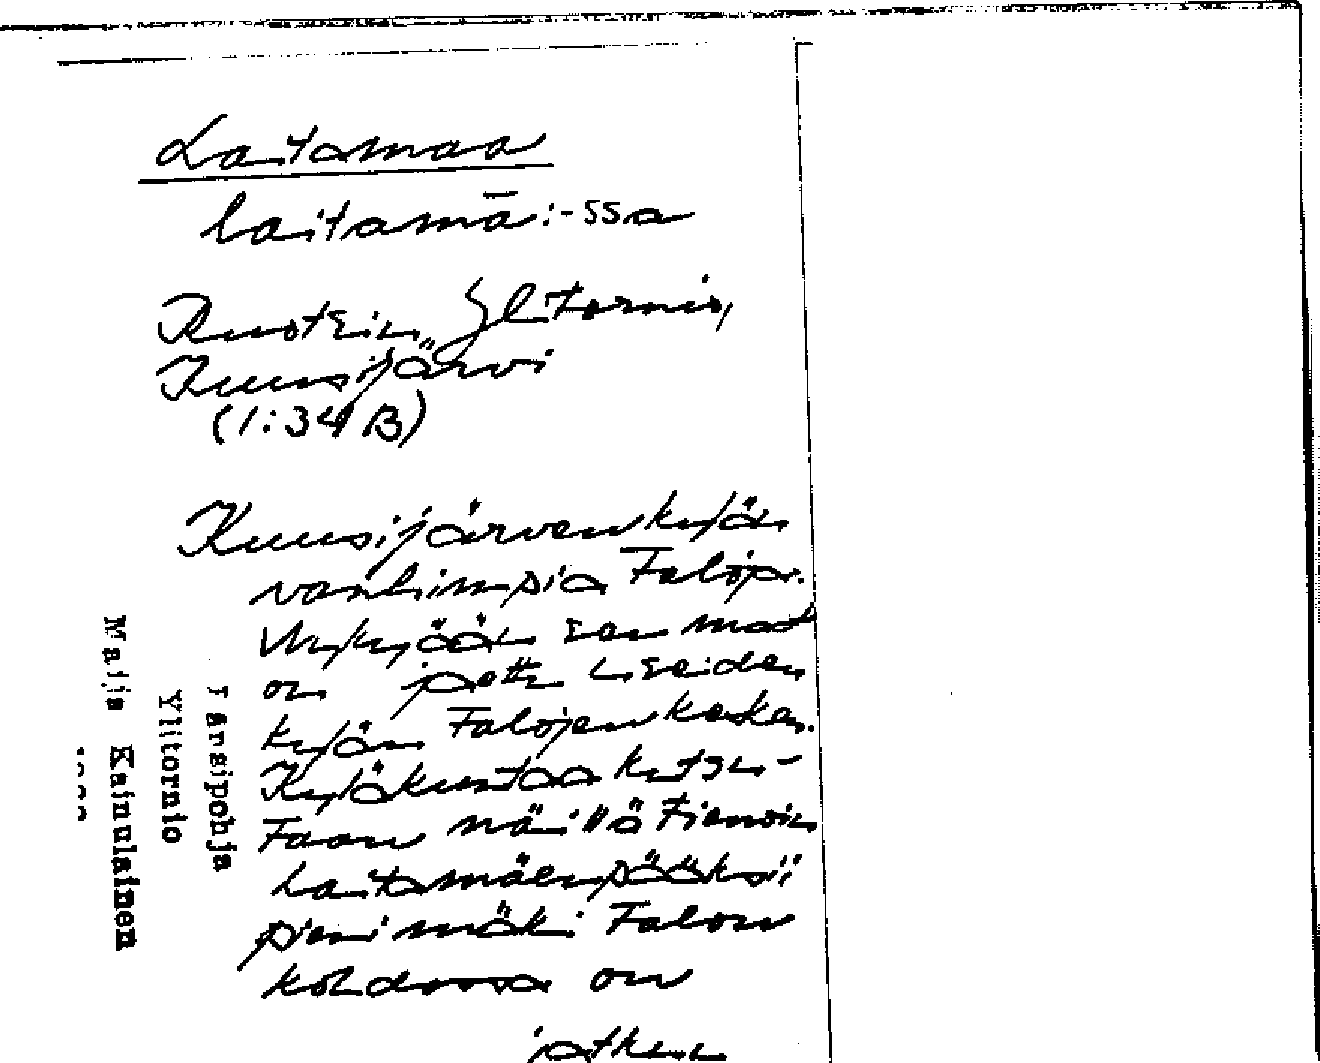 Laitamaa
laitamā:-ssa
Ruotsin Ylitornio,
Kuusijärvi
(1:34 B)
Kuusijärven kylän
vanhimpia taloja.
Nykyään sen
on useiden
kylän talojen
Kyläkuntaa kutsu-
taan näillä tienoin
Laitamäenpääksi
pieni mäki talon
kohdassa on
jatkuu
Länsipohja
Ylitornio
Maija Kainulainen